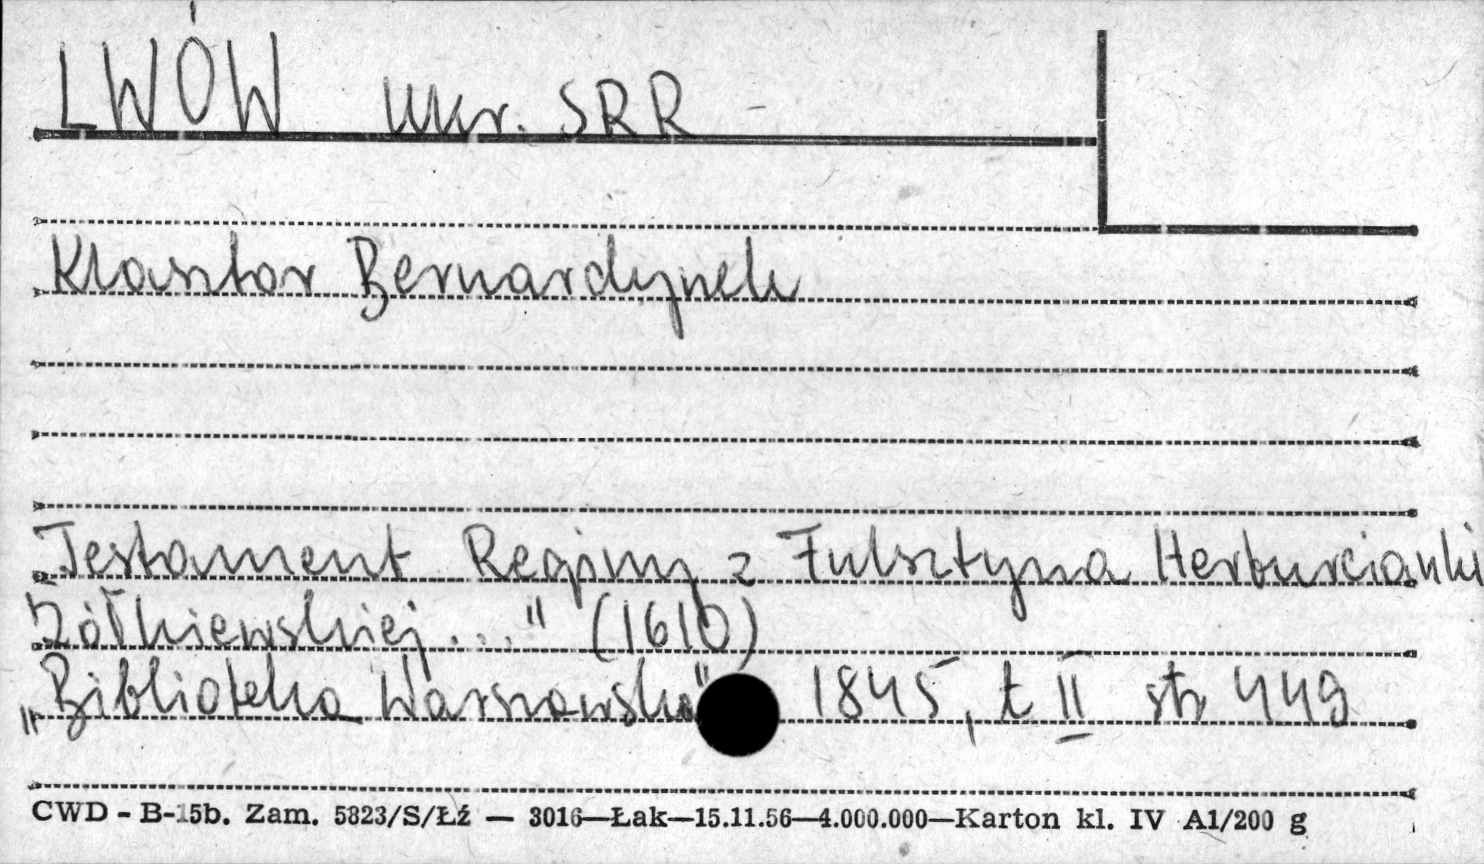 LWÓW Ukr. SRR -
Klasztor Bernardynek
Testament Reginy z Fulsztyna Herburcianki
Żółkiewskiej ..." (1610)
„Biblioteka Warszawska" 1845, t II str 449
CWD - B-15b. Zam. 5823/S/Łź — 3016—Łak—15.11.56—4.000.000—Karton kl. IV A1/200 g